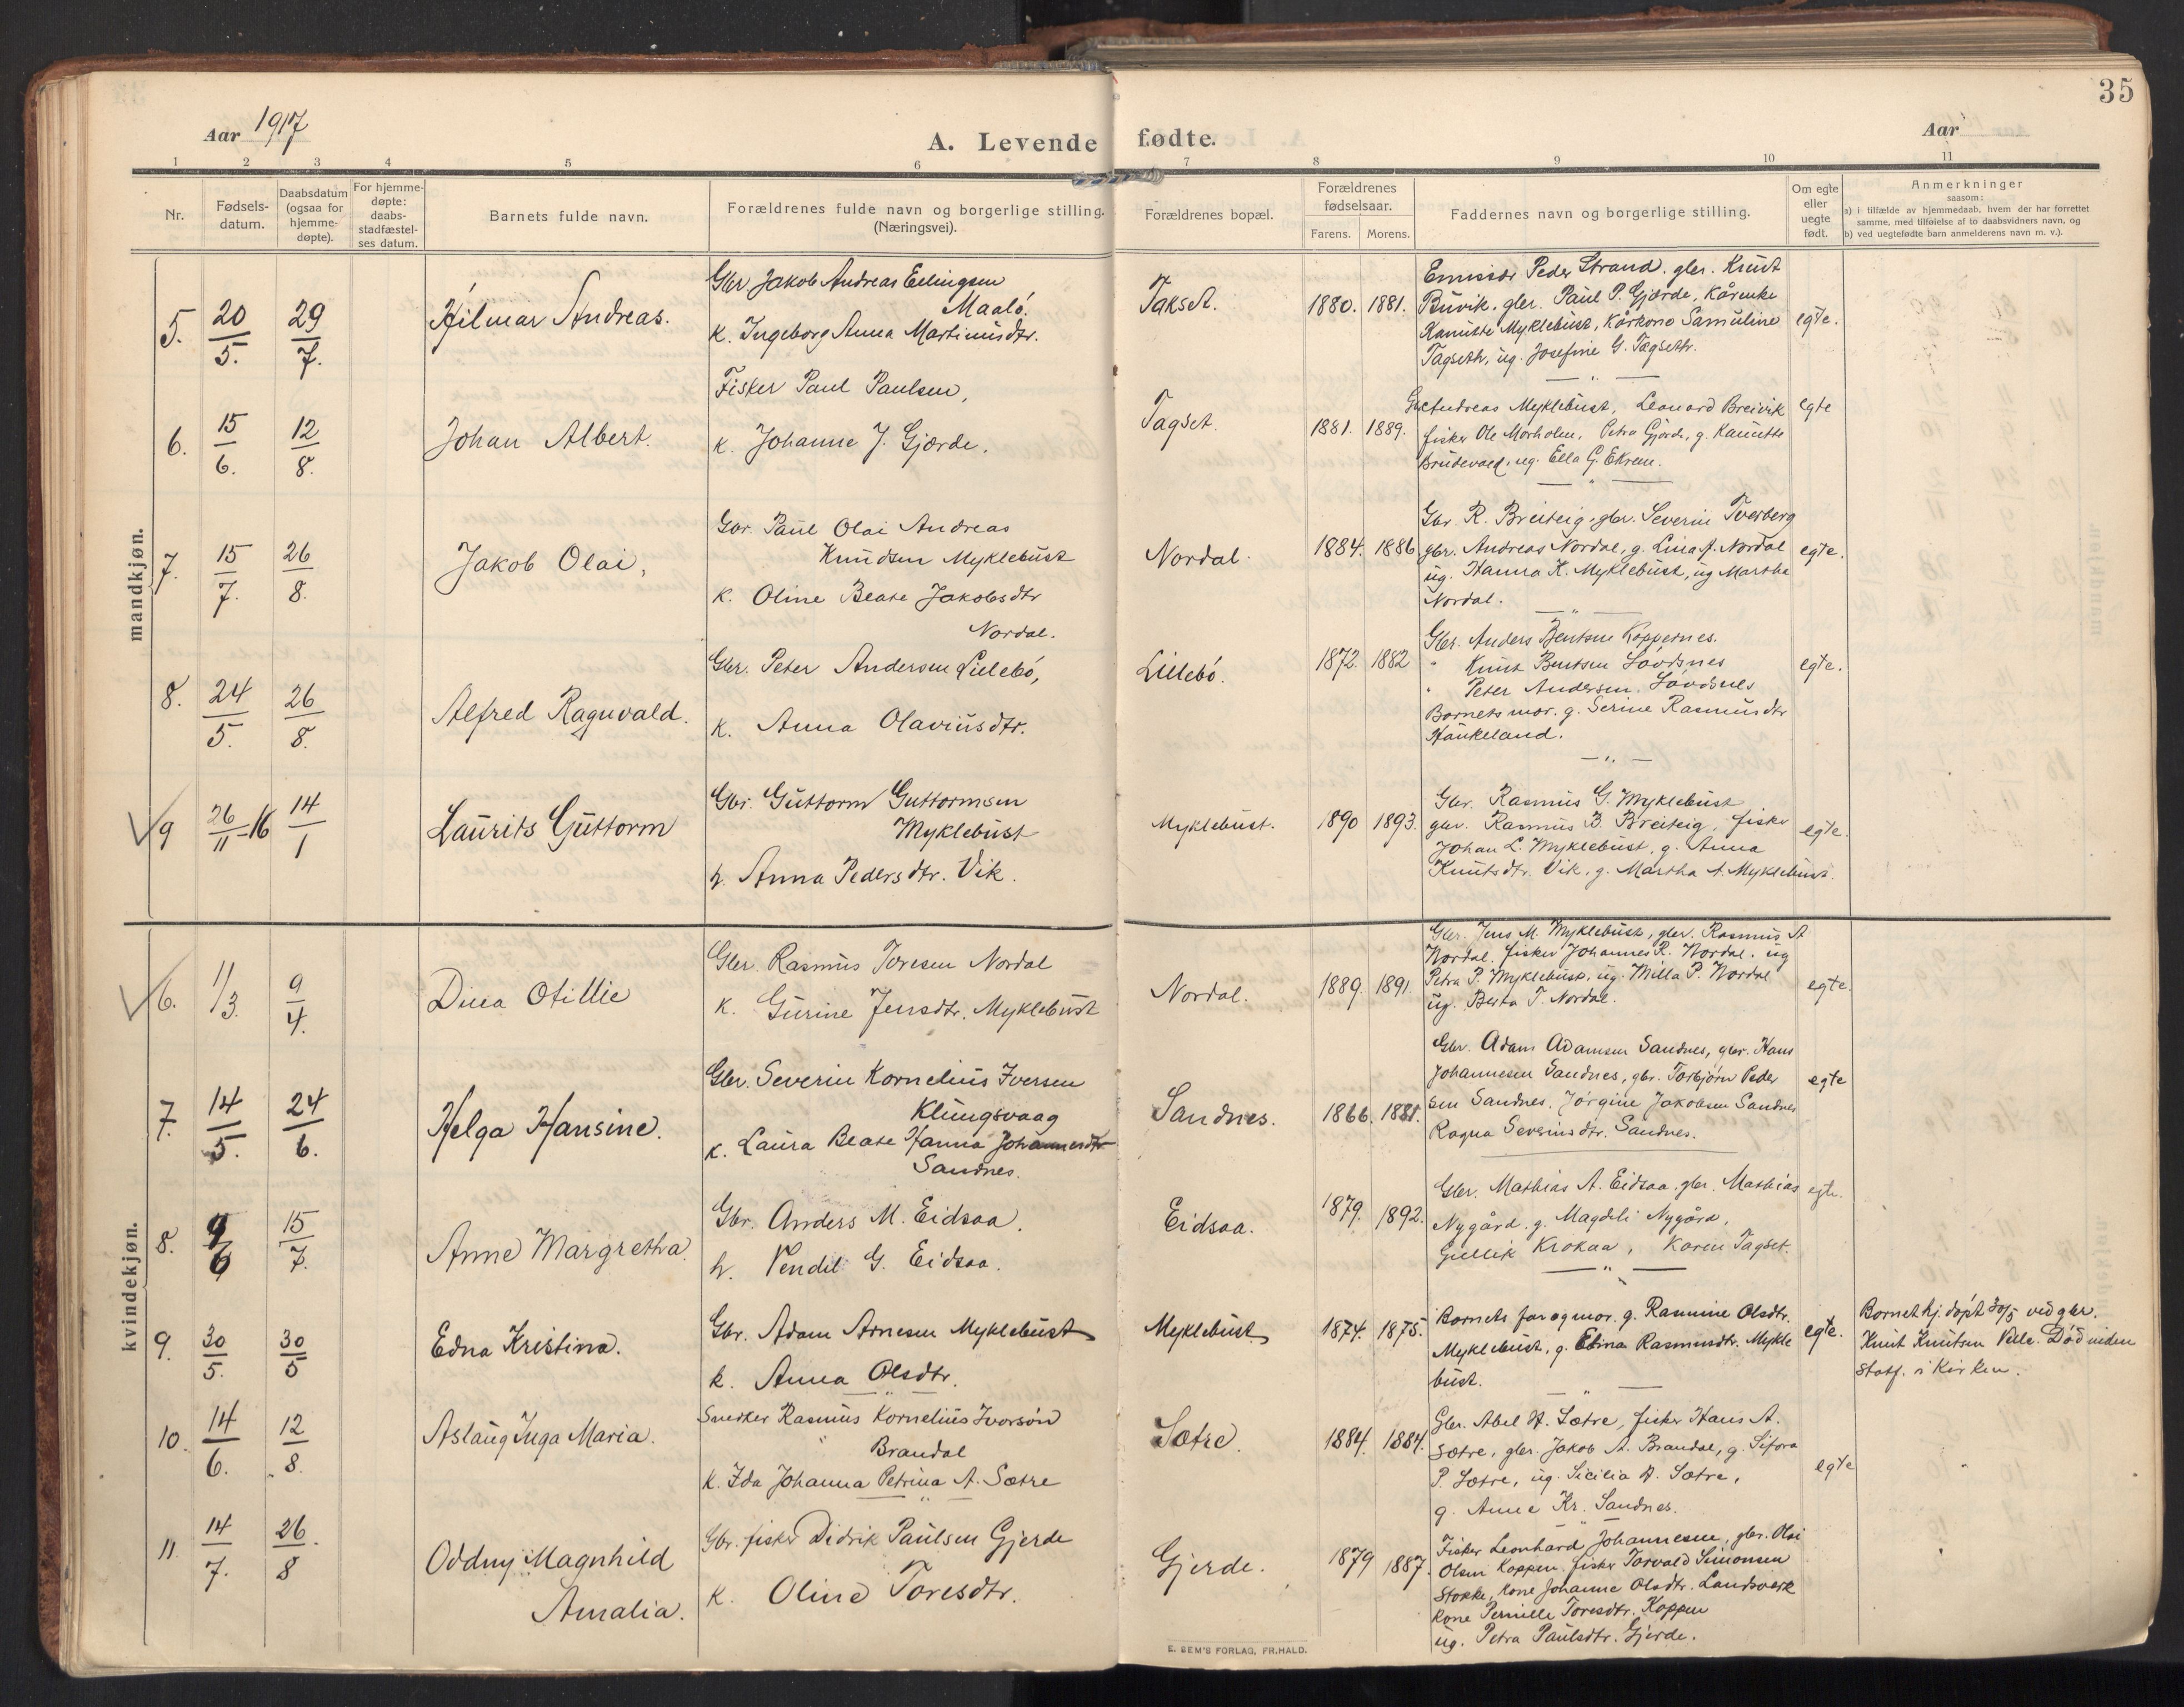 35
Aar 1917
A. Levende fødte.
Aar
1 2 3 4 5 6 7 8 9 10 11
Nr.
Fødsels-
datum.
Daabsdatum
(ogsaa for
hjemme-
døpte).
For hjemme-
døpte:
daabs-
stadfæstel-
ses datum.
Barnets fulde navn.
Forældrenes fulde navn og borgerlige stilling.
(Næringsvei).
Forældrenes bopæl.
Forældrenes
fødselsaar.
Farens. Morens.
Faddernes navn og borgerlige stilling.
Om egte
eller
uegte
født.
Anmerkninger
saasom:
a) i tilfælde av hjemmedaab, hvem der har forrettet
samme, med tilføielse af to daabsvidners navn, og
b) ved uegtefødte barn anmelderens navn m. v.).
mandkjøn.
5. 20/5. 29/7. Hilmar Andreas.
Gbr Jakob Andreas Ellingsen
Maalö.
k. Ingeborg Anna Martinusdtr.
Takset. 1880. 1881.
Emissær Peder Strand. gbr. Knut
Buvik, gbr. Paul P. Gjærde, Kårenke
Kanutte Myklebust, Kårkone Samuline
Tagseth, ug. Josefine G. Tagseth.
egte.
6. 15/6. 12/8. Johan Albert.
Fisker Paul Paulsen,
k. Johanne J. Gjærde.
Tagset. 1881. 1889.
Andreas Myklebust, Leonard Breivik
fisker Ole Morholm, Petra Gjörde, g. Kanutte
Brudevold, ug. Ella G. Ekrem.
egte
7. 15/7. 26/8. Jakob Olai,
Gbr. Paul Olai Andreas
Knudsen Myklebust
k. Oline Beate Jakobsdtr
Nordal.
Nordal. 1884. 1886
Gbr. R. Breiteig, gbr. Severin Tverberg
gbr. Andreas Nordal, g. Lina J. Nordal
ug. Hanna K. Myklebust, ug Martha
Nordal.
egte.
8. 24/5. 26/8. Alfred Ragnvald.
Gbr. Peter Andersen Lillebö,
k. Anna Olaviusdtr.
Lillebö. 1872. 1882
Gbr. Anders Bentsen Koppernes.
" Knut Bentsen Lövdsnes
" Peter Andersen Lövdsnes
Barnets mor. g. Serine Rasmusdtr
Haukeland.
egte.
9 26/11-16 14/1 Laurits Guttorm
Gbr. Guttorm Guttormsen
Myklebust
h. Anna Pedersdtr. Vik.
Myklebust. 1890 1893.
Gbr. Rasmus G. Myklebust
gbr. Rasmus B. Breiteig, fisker
Johan L. Myklebust, g. Anna
Knutsdtr. Vik, g. Martha A. Myklebust.
egte.
kvindekjøn.
6. 11/3. 9/4. Dina Otillie
Gbr. Rasmus Toresen Nordal
k. Gurine Jensdtr. Myklebust
Nordal. 1889. 1891.
Gbr. Jens M. Myklebust, gbr. Rasmus A
Nordal. fisker Johannes R. Nordal. ug
Petra P. Myklebust, ug. Milla P. Nordal
ug. Berta T. Nordal.
egte.
7. 14/5. 24/6. Helga Hansine.
Gbr. Severin Kornelius Iversen
Klungsvaag
k. Laura Beate Hanna Johannesdtr
Sandnes.
Sandnes. 1866. 1881.
Gbr. Adam Adamsen Sandnes, gbr. Hans
Johannesen Sandnes, gbr. Torbjörn Peder
sen Sandnes, Jörgine Jakobsen Sandnes
Ragna Severinsdtr. Sandnes.
egte
8. 9/6 15/7. Anne Margretha
Gbr. Anders M. Eidsaa.
h. Vendel G. Eidsaa.
Eidsaa. 1879. 1892.
Gbr. Mathias A. Eidsaa, gbr. Mathias
Nygård. g. Magdeli Nygård,
Gullik Krokaa, Karen Tagset.
egte.
9. 30/5. 30/5 Edna Kristina.
Gbr. Adam Arnesen Myklebust
k. Anna Olsdtr.
Myklebust 1874. 1875.
Barnets far og mor. g. Rasmine Olsdtr.
Myklebust, g. Elina Rasmusdtr. Mykle
bust.
egte.
Barnet hj. döpt 30/5 ved gbr.
Knut Knutsen Velle. Död uden
stadf. i kirken.
10. 14/6. 12/8. Aslaug Inga Maria.
Snedker Rasmus Kornelius Ivorsön
Brandal
k. Ida Johanna Petrina A. Sætre
Sætre. 1884. 1884.
Gbr. Abel H. Sætre, fisker Hans A.
Sætre, gbr. Jakob A. Brandal, g. Sifora
P. Sætre, ug. Sicilia A. Sætre,
g. Anne Kr. Sandnes.
egte
11. 14/7. 26/8 Oddny Magnhild
Amalia.
Gbr. fisker Didrik Paulsen Gjerde
k. Oline Toresdtr.
Gjerde. 1879 1887.
Fisker Leonhard Johannesen, gbr. Olai
Olsen Koppen, fisker Torvald Simonsen
Stokke, kone Johanne Olsdtr. Landsverk
kone Pernille Toresdtr. Koppen
ug. Petra Paulsdtr. Gjerde.
E. SEM'S FORLAG, FR.HALD.